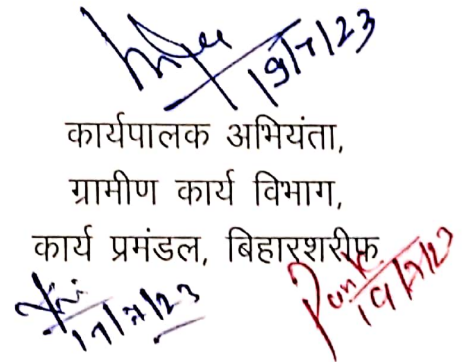 19/7/23
कार्यपालक अभियंता,
ग्रामीण कार्य विभाग,
कार्य प्रमंडल, बिहारशरीफ
19/7/23